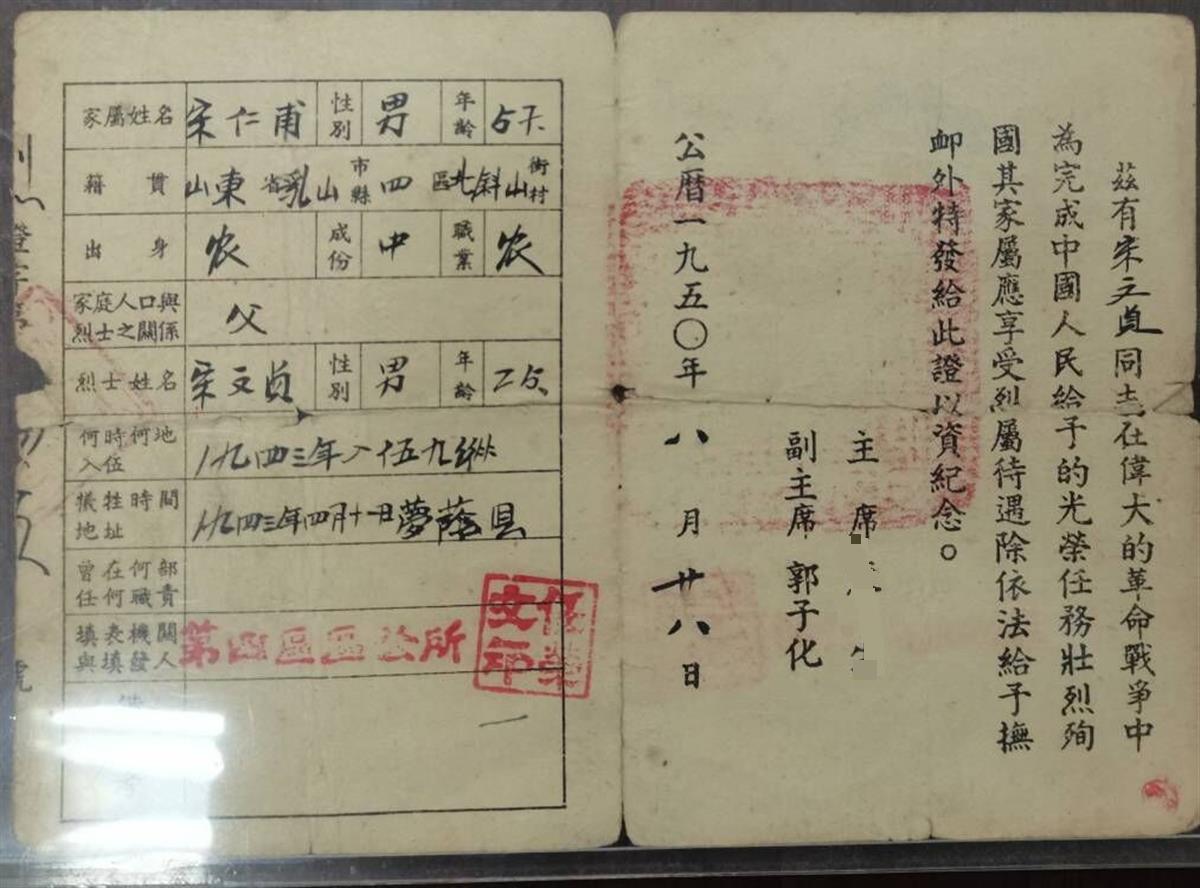 茲有宋文貞同志在偉大的革命戰爭中
為完成中國人民給予的光榮任務壯烈殉
國其家屬應享受烈屬待遇除依法給予撫
卹外特發給此證以資紀念。
主席
副主席 郭子化
公曆一九五〇年八月廿八日
家屬姓名 宋仁甫 性別 男 年齡 57.
籍貫 山東省乳山市縣四區北斜山街村
出身 农 成份 中 職業 农
家庭人口與烈士之關係 父
烈士姓名 宋文貞 性別 男 年齡 25.
何時何地入伍 一九四三年入伍九纵
犧牲時間地址 一九四三年四月十一日夢蔭县
曾在何部任何職責
填表機關與填發人 第四區區公所
任榮文印
證字第
號